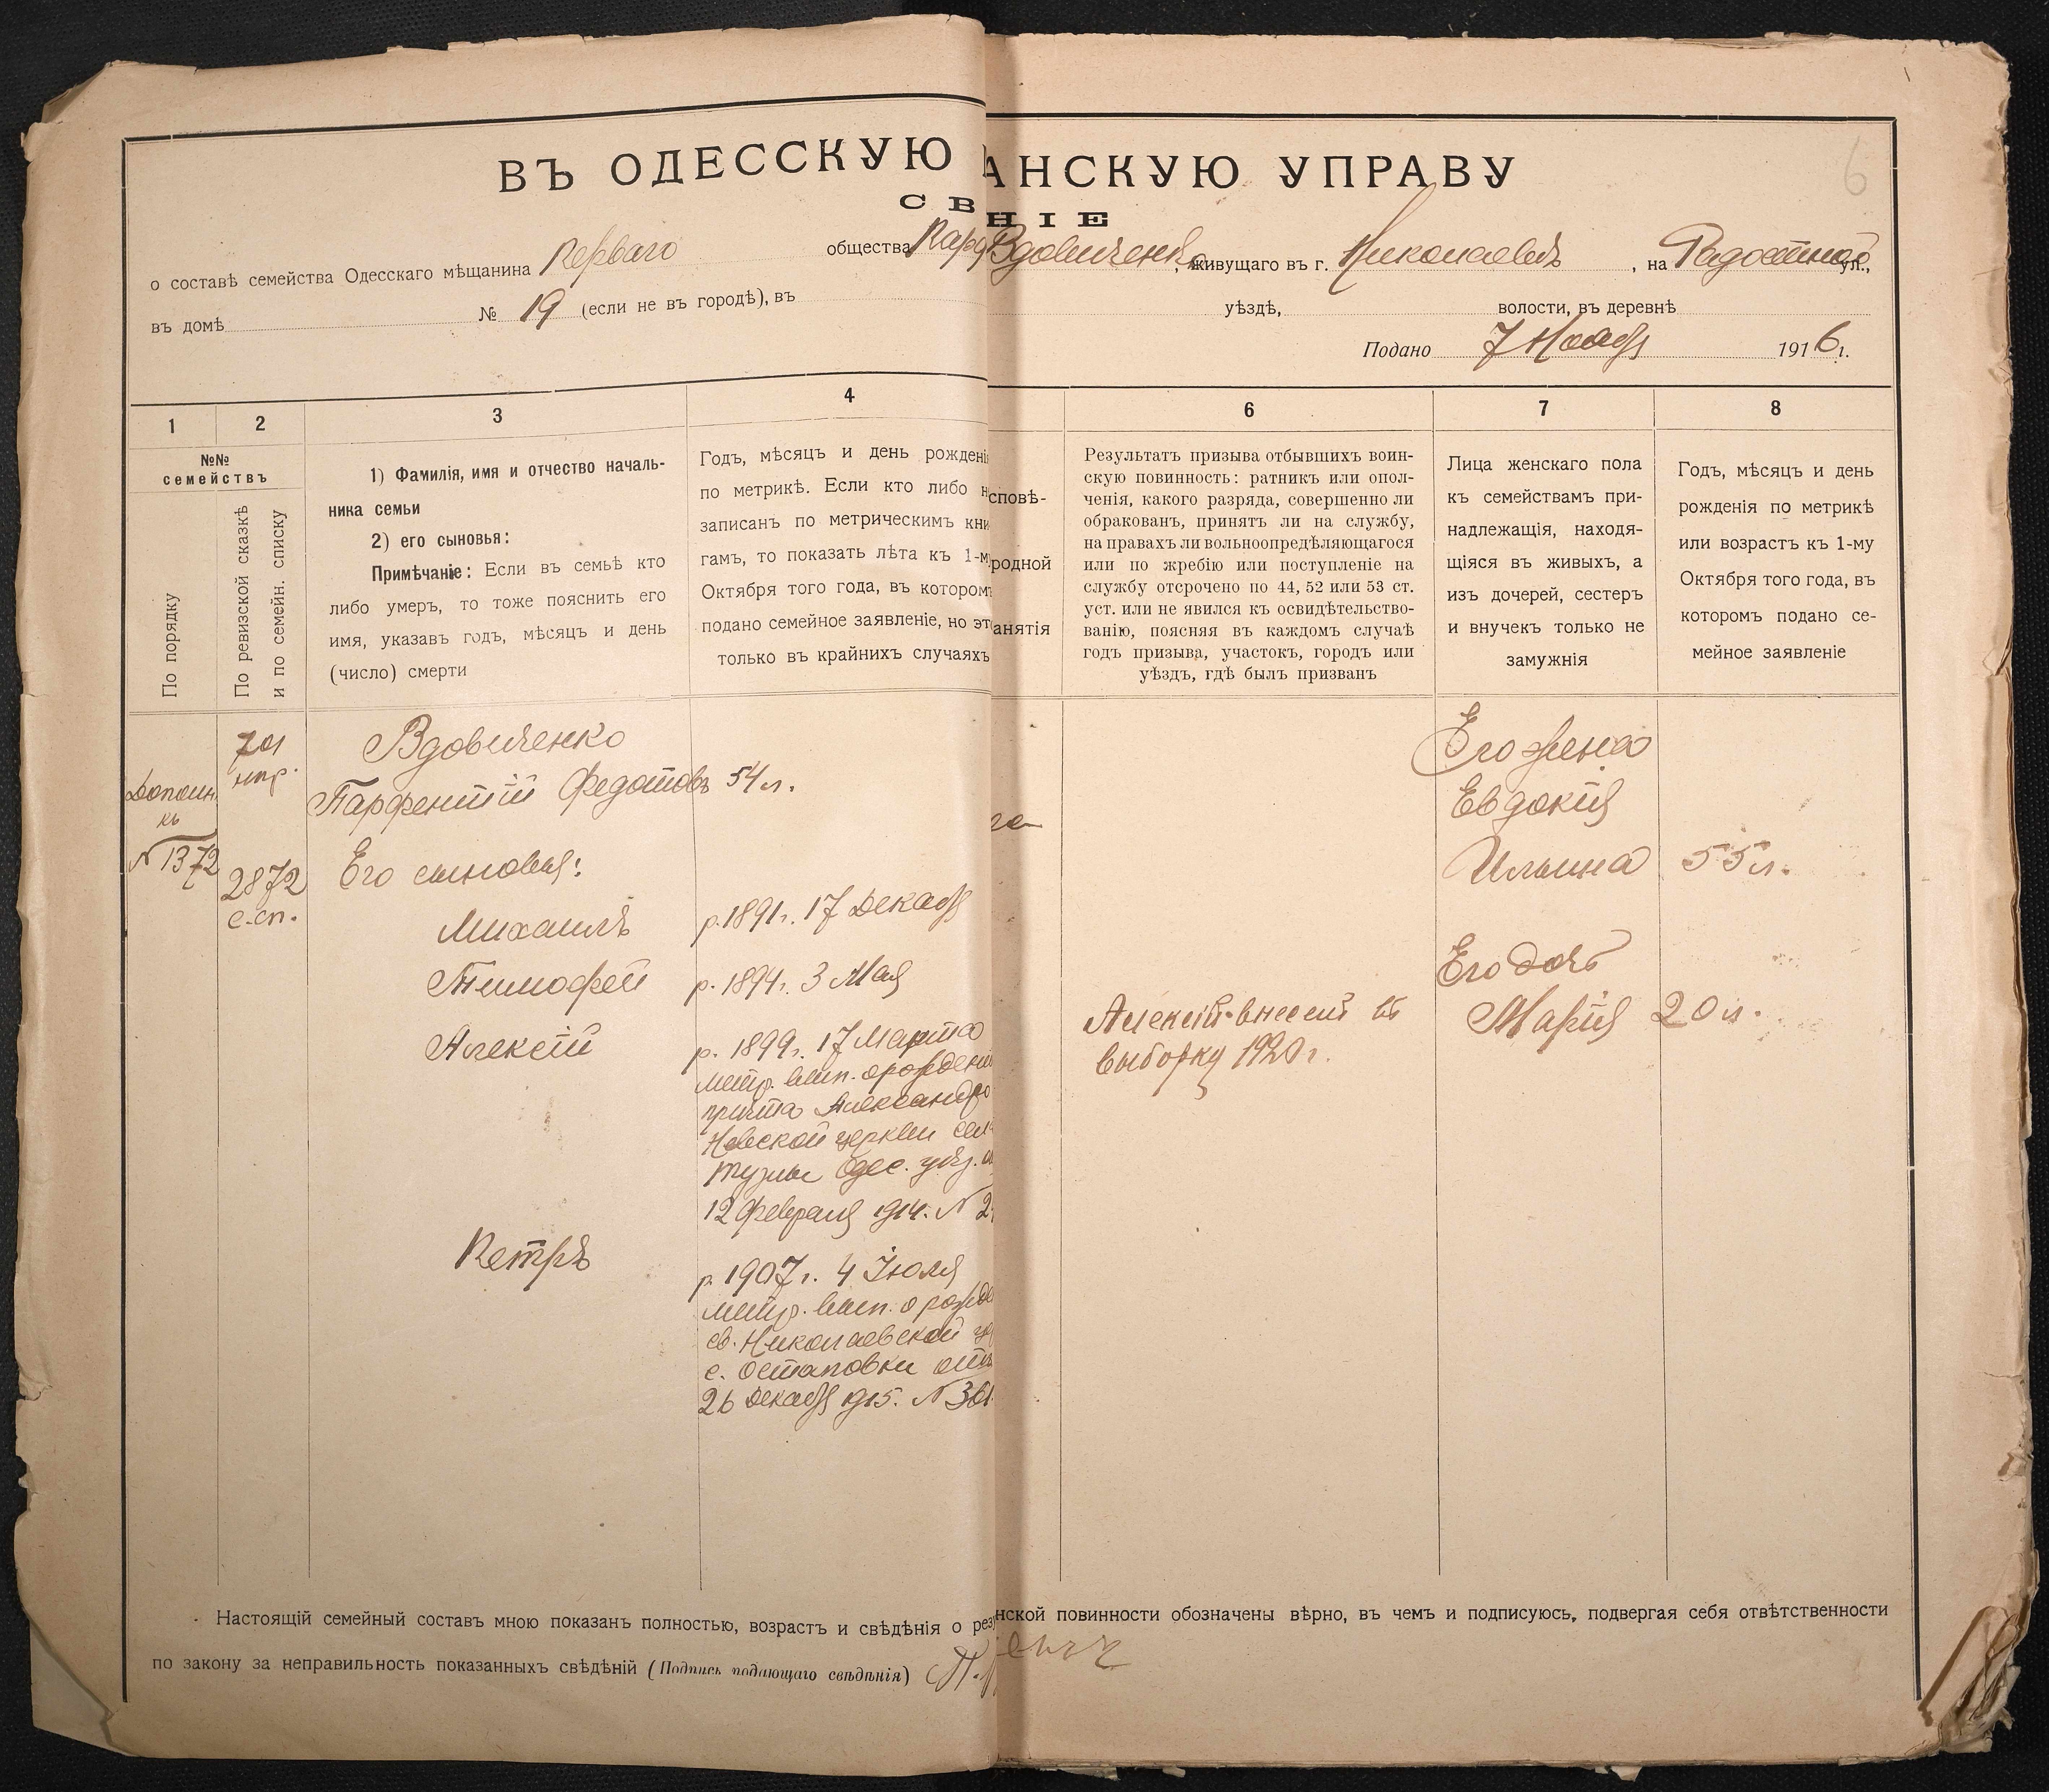 6
ВЪ ОДЕССКУЮ АНСКУЮ УПРАВУ
СВ НІЕ
о составѣ семейства Одесскаго мѣщанина Перваго общества Вдовиченко, живущаго въ г. Николаевѣ, на ул.,
въ домѣ № 19 (если не въ городѣ), въ уѣздѣ, волости, въ деревнѣ
Подано 7 Нояб 1916 г.
1 2 3 4 6 7 8
№№
семействъ
По порядку
По ревизской сказкѣ
и по семейн. списку
1) Фамилія, имя и отчество началь-
ника семьи
2) его сыновья:
Примѣчаніе: Если въ семьѣ кто
либо умеръ, то тоже пояснить его
имя, указавъ годъ, мѣсяцъ и день
(число) смерти
Годъ, мѣсяцъ и день рожденія
по метрикѣ. Если кто либо н
записанъ по метрическимъ кни
гамъ, то показать лѣта къ 1-м
Октября того года, въ котором
подано семейное заявленіе, но эт
только въ крайнихъ случаяхъ
сповѣ-
родной
анятія
Результатъ призыва отбывшихъ воин-
скую повинность: ратникъ или опол-
ченія, какого разряда, совершенно ли
обракованъ, принятъ ли на службу,
на правахъ ли вольноопредѣляющагося
или по жребію или поступленіе на
службу отсрочено по 44, 52 или 53 ст.
уст. или не явился къ освидѣтельство-
ванію, поясняя въ каждомъ случаѣ
годъ призыва, участокъ, городъ или
уѣздъ, гдѣ былъ призванъ
Лица женскаго пола
къ семействамъ при-
надлежащія, находя-
щіяся въ живыхъ, а
изъ дочерей, сестеръ
и внучекъ только не
замужнія
Годъ, мѣсяцъ и день
рожденія по метрикѣ
или возрастъ къ 1-му
Октября того года, въ
котором подано се-
мейное заявленіе
Дополн.
къ
№ 1372
701
2872
с.сп.
Вдовиченко
Парфентій Федотовъ 54 л.
Его сыновья:
Михаилъ р. 1891 г. 17 Декабя
Тимофей р. 1894 г. 3 Мая
Алексѣй р. 1899 г. 17 Марта
метр. вып. о рожден
причта Александро
Невской церкви сел
Тузлы Одес. уѣз. о
12 Февраля 1914. № 2
Петръ р. 1907 г. 4 Іюля
метр. вып. о рожде
св. Николаевской це
с. Остаповки отъ
26 Декабя 1915. № 361
Алексѣй внесенъ въ
выборку 1920 г.
Его жена
Евдокія
Ильина 55 л.
Его дочь
Марія 20 л.
Настоящій семейный составъ мною показанъ полностью, возрастъ и свѣдѣнія о рез нской повинности обозначены вѣрно, въ чемъ и подписуюсь, подвергая себя отвѣтственности
по закону за неправильность показанныхъ свѣдѣній (Подпись подающаго свѣдѣнія)